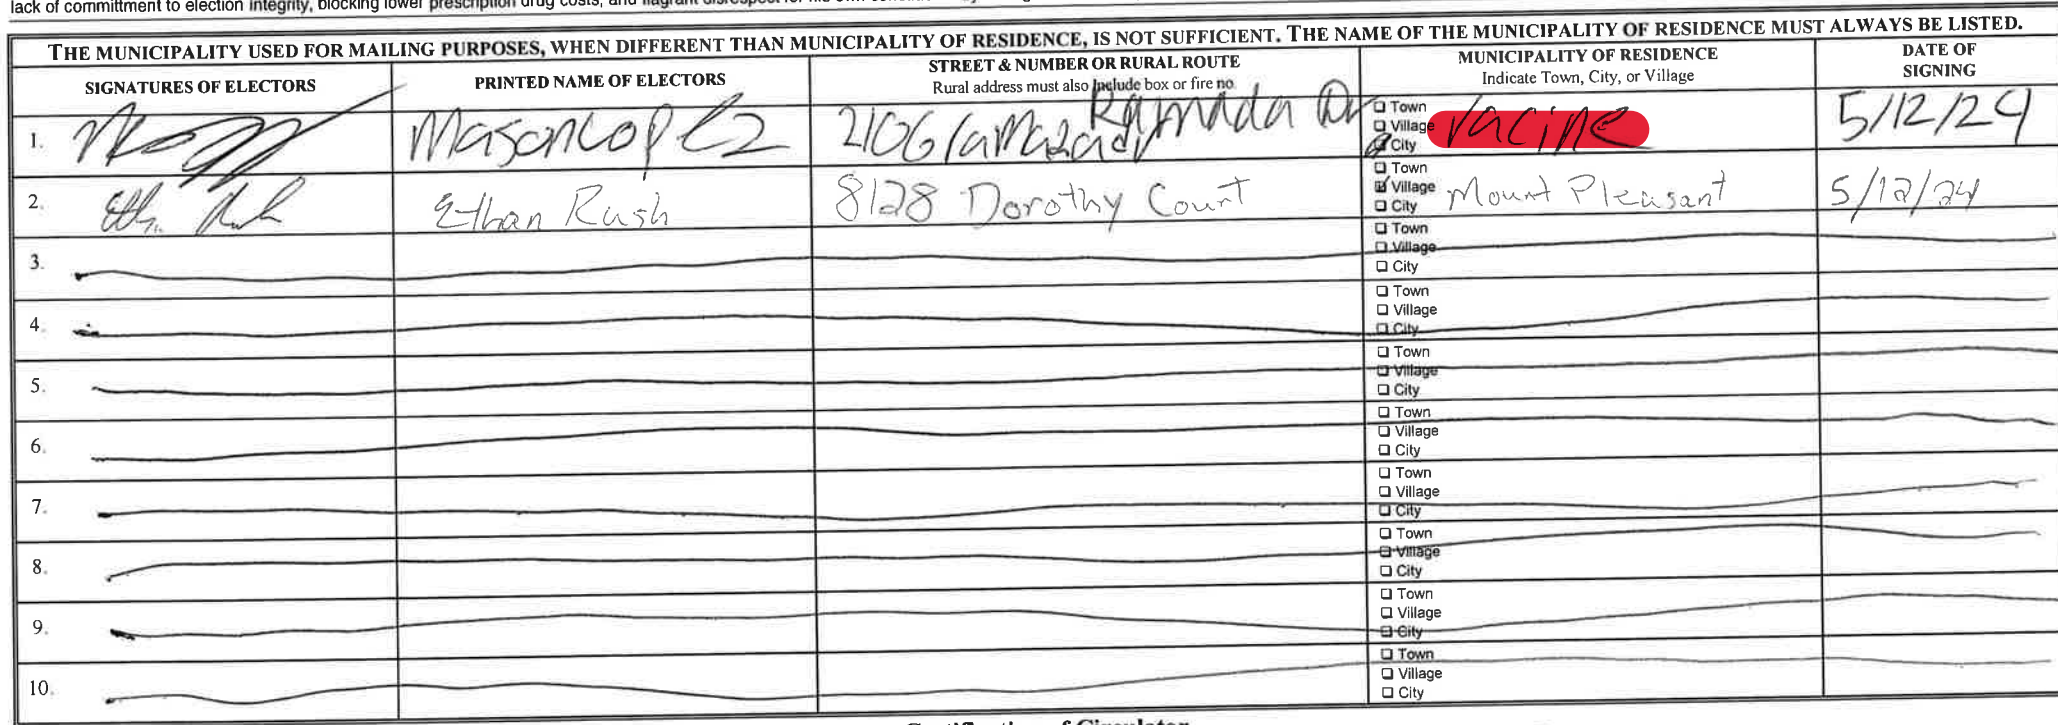 lack of committment to election integrity, blocking lower prescription drug costs, and flagrant disrespect for his own
THE MUNICIPALITY USED FOR MAILING PURPOSES, WHEN DIFFERENT THAN MUNICIPALITY OF RESIDENCE, IS NOT SUFFICIENT. THE NAME OF THE MUNICIPALITY OF RESIDENCE MUST ALWAYS BE LISTED.
SIGNATURES OF ELECTORS
PRINTED NAME OF ELECTORS
STREET & NUMBER OR RURAL ROUTE
Rural address must also include box or fire no.
MUNICIPALITY OF RESIDENCE
Indicate Town, City, or Village
DATE OF
SIGNING
1. Mason Lopez 2106 Ramada Dr
Town
Village
City
racine 5/12/24
2. Ethan Rush 8128 Dorothy Court
Town
Village
City
Mount Pleasant 5/12/24
3.
Town
Village
City
4.
Town
Village
City
5.
Town
Village
City
6.
Town
Village
City
7.
Town
Village
City
8.
Town
Village
City
9.
Town
Village
City
10.
Town
Village
City